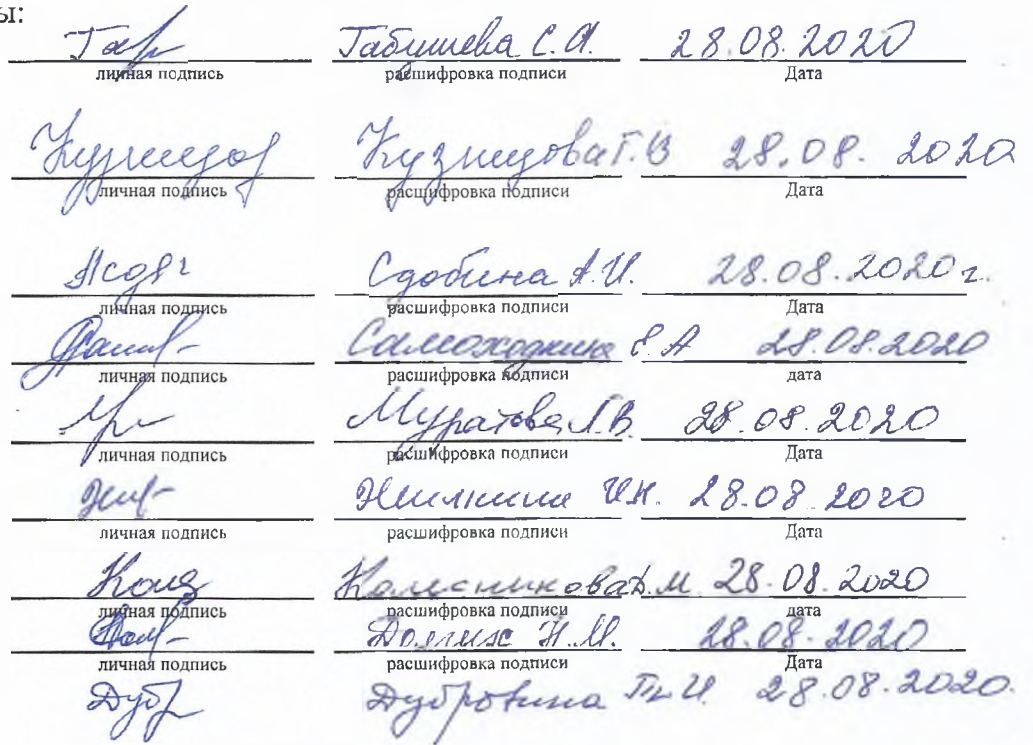 ы:
Габ Габушева С.А. 28.08.2020
личная подпись расшифровка подписи Дата
Кузнецова Г.В 28.08. 2020
личная подпись расшифровка подписи Дата
Сдобина А.И. 28.08.2020 г.
личная подпись расшифровка подписи Дата
Самоходкина Е.А 28.08.2020
личная подпись расшифровка подписи дата
Муратова Л.В. 28.08.2020
личная подпись расшифровка подписи Дата
Жилкина И.Н. 28.08.2020
личная подпись расшифровка подписи Дата
Колесникова Д.М. 28.08.2020
личная подпись расшифровка подписи дата
Долгих Н.М. 28.08.2020
личная подпись расшифровка подписи Дата
Дубр Дубровина Т.И. 28.08.2020.